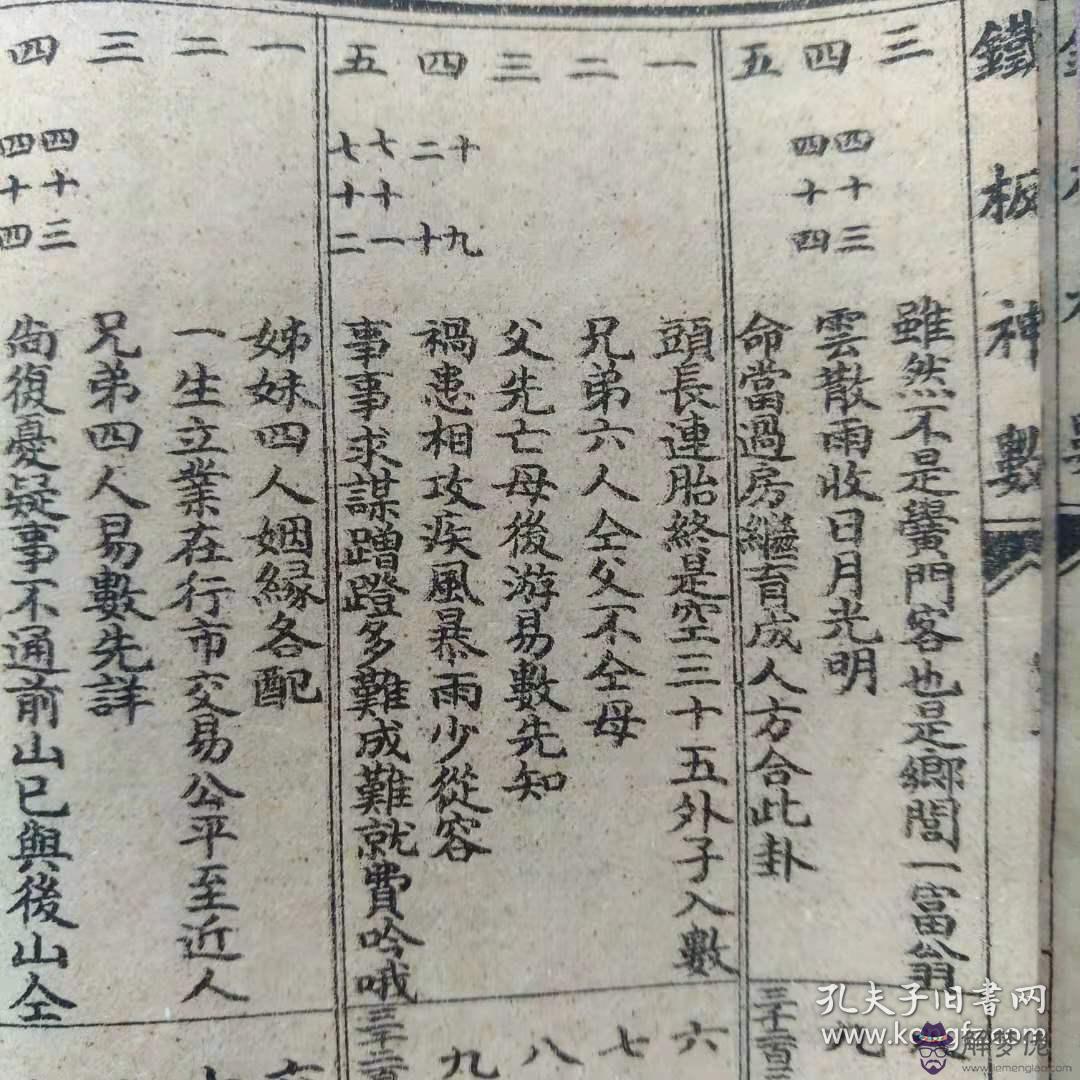 鐵板神數
三 雖然不是黌門客也是鄉閭一富翁
四 四十三 四十四 雲散雨收日月光明
五 命當過房繼育成人方合此卦
一 頭長連胎終是空三十五外子入數
二 兄弟六人仝父不仝母
三 父先亡母後游易數先知
四 十九 二十 禍患相攻疾風暴雨少從容
五 七十一 七十二 事事求謀蹭蹬多難成難就費吟哦
一 姊妹四人姻緣各配
二 一生立業在行市交易公平至近人
三 兄弟四人易數先詳
四 四十三 四十四 尚復憂疑事不通前山已與後山仝
六
七
八
九
孔夫子旧書网
解梦佬
www.lemenglao.com